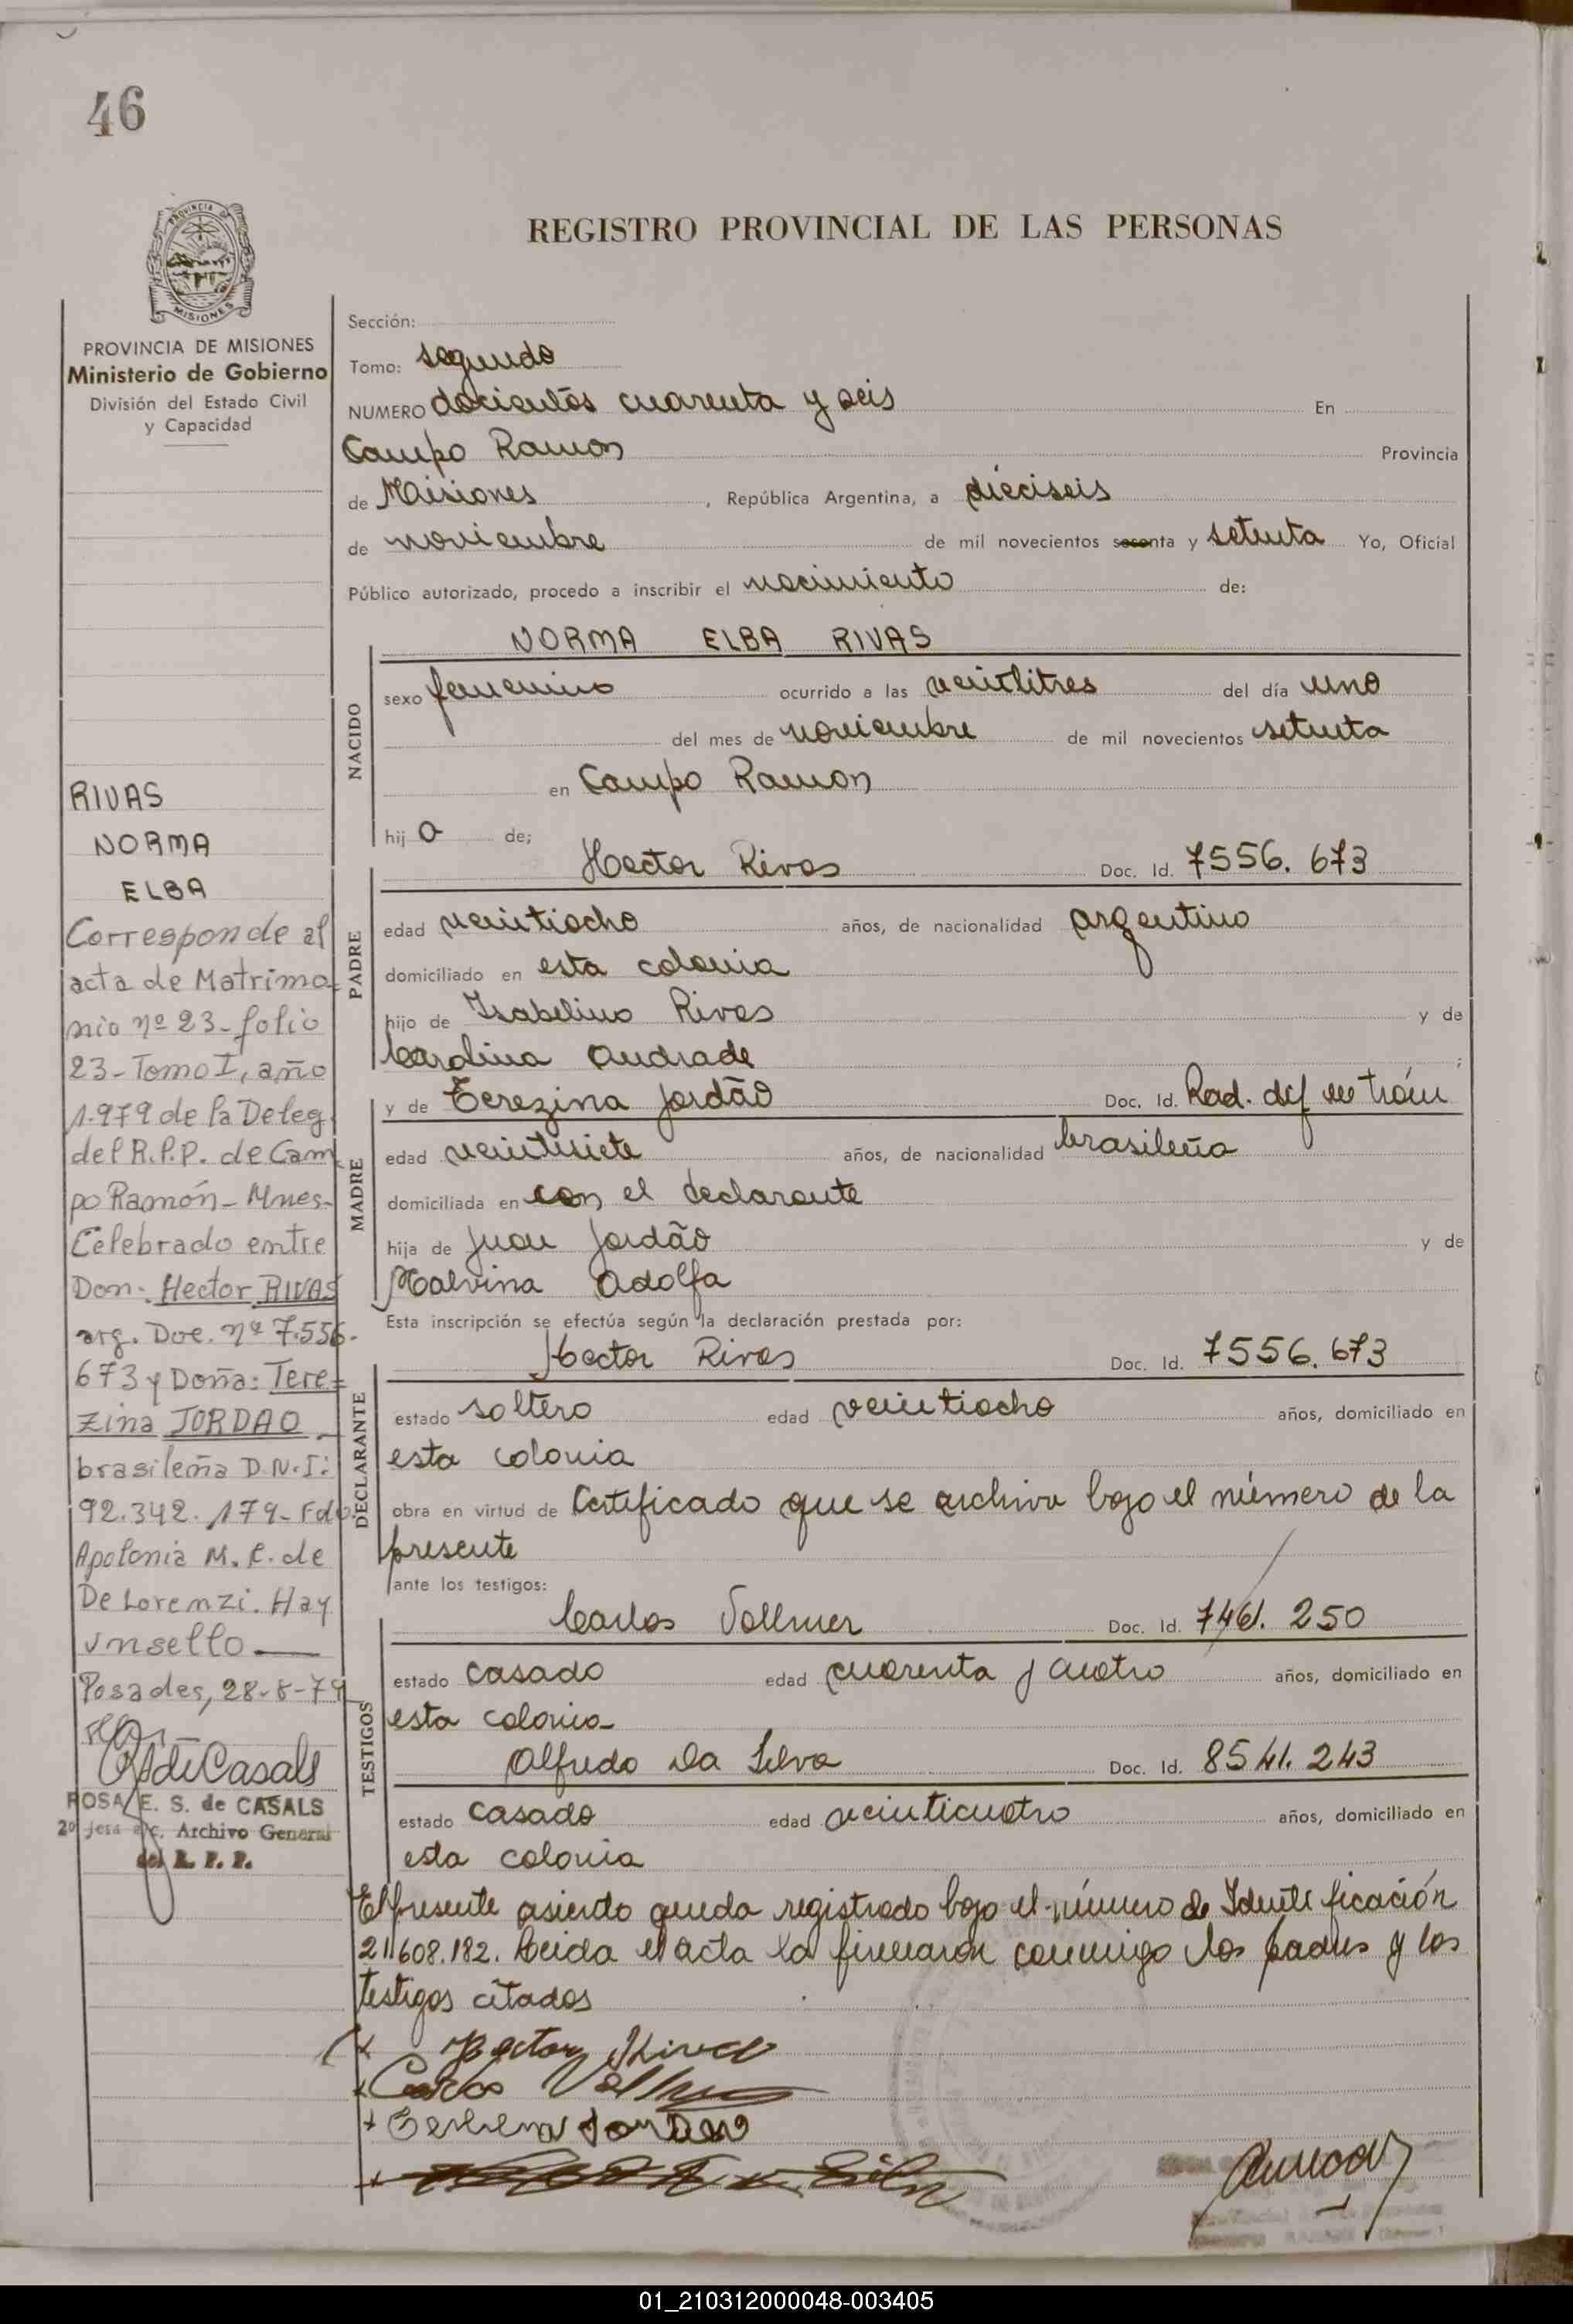 46
REGISTRO PROVINCIAL DE LAS PERSONAS
PROVINCIA DE MISIONES
Ministerio de Gobierno
División del Estado Civil
y Capacidad
RIVAS
NORMA
ELBA
Corresponde al
acta de Matrimo-
nio nº 23-folio
23-Tomo I, año
1.979 de la Deleg.
del R.P.P. de Cam
po Ramón-Mnes-
Celebrado entre
Don: Hector RIVAS
arg. Doc. nº 7.556-
673 y Doña: Tere=
zina JORDAO
brasileña D.N.I:
92.342.179-Fdo.
Apolonia M. C. de
De Lorenzi. Hay
un sello
Posadas, 28-8-79
ROSA E. S. de CASALS
2º jefa a/c. Archivo General
del R. P. P.
Sección:
Tomo: segundo
NUMERO docientos cuarenta y seis En
Campo Ramon Provincia
de Misiones, República Argentina, a dieciseis
de noviembre de mil novecientos sesenta y setenta Yo, Oficial
Público autorizado, procedo a inscribir el nacimiento de:
NORMA ELBA RIVAS
NACIDO
sexo femenino ocurrido a las veintitres del día uno
del mes de noviembre de mil novecientos setenta
en Campo Ramon
hij a de;
Hector Rivas Doc. Id. 7556.673
PADRE
edad veintiocho años, de nacionalidad argentino
domiciliado en esta colonia
hijo de Isabelino Rivas y de
Carolina Andrade ;
y de Terezina Jordão Doc. Id. Rad. def en trám
MADRE
edad veintisiete años, de nacionalidad brasileña
domiciliada en con el declarante
hija de Juan Jordão y de
Malvina Adolfa
Esta inscripción se efectúa según la declaración prestada por:
Hector Rivas Doc. Id. 7556.673
DECLARANTE
estado soltero edad veintiocho años, domiciliado en
esta colonia
obra en virtud de Certificado que se archiva bajo el número de la
presente
ante los testigos:
Carlos Vollmer Doc. Id. 7461.250
TESTIGOS
estado casado edad cuarenta y cuatro años, domiciliado en
esta colonia
Alfredo Da Silva Doc. Id. 8541.243
estado casado edad veinticuatro años, domiciliado en
esta colonia
El presente asiento queda registrado bajo el número de Identificación
21.608.182. Leida el acta la firmaron conmigo los padres y los
testigos citados
Hector Rivas
Carlos Vollmer
01_210312000048-003405